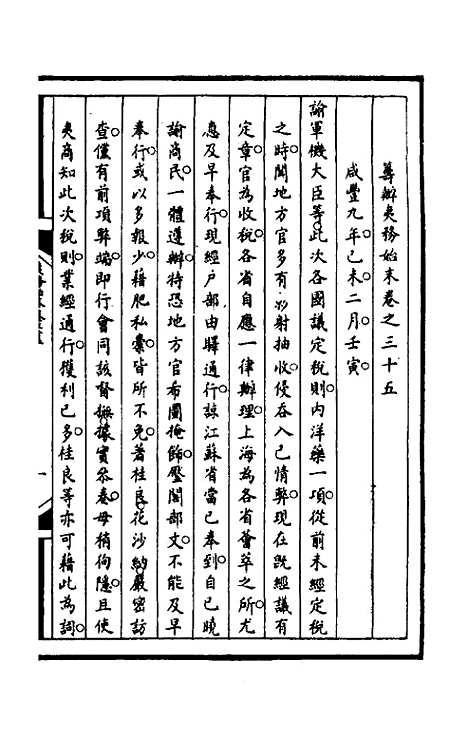 籌辦夷務始末卷之三十五
咸豐九年己未二月壬寅
諭軍機大臣等。此次各國議定稅則。內洋藥一項。從前未經定稅
之時。聞地方官多有影射抽收。侵吞入己情弊。現在既經議有
定章。官為收稅。各省自應一律辦理。上海為各省薈萃之所。尤
應及早奉行。現經戶部由驛通行。諒江蘇省當已奉到。自已曉
諭商民。一體遵辦。特恐地方官布圖掩飾。壓閣部文。不能及早
奉行。或以多報少。藉肥私橐。皆所不免。著桂良。花沙納。嚴密訪
查。僅有前項弊端。即行會同該督撫。據實參奏。毋稍徇隱。且使
夷商知此次稅則。業經通行。獲利已多。桂良等亦可藉此為詞。